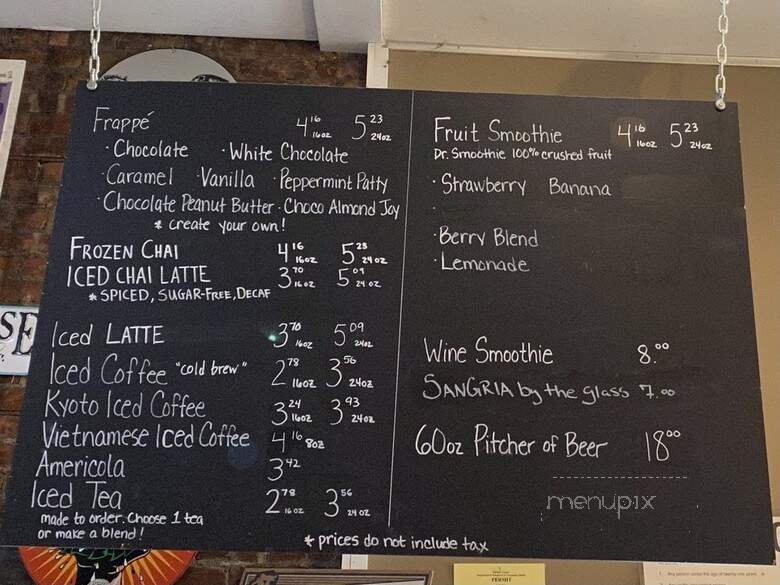 Frappé 4 16 16oz 5 23 24oz
· Chocolate · White Chocolate
· Caramel · Vanilla · Peppermint Patty
· Chocolate Peanut Butter · Choco Almond Joy
* create your own!
FROZEN CHAI 4 16 16oz 5 23 24oz
ICED CHAI LATTE 3 70 16oz 5 09 24oz
* SPICED, SUGAR-FREE, DECAF
Iced LATTE 3 70 16oz 5 09 24oz
Iced Coffee "cold brew" 2 78 16oz 3 56 24oz
Kyoto Iced Coffee 3 24 16oz 3 93 24oz
Vietnamese Iced Coffee 4 16 8oz
Americola 3 42
Iced Tea 2 78 16oz 3 56 24oz
made to order. Choose 1 tea
or make a blend!
Fruit Smoothie 4 16 16oz 5 23 24oz
Dr. Smoothie 100% crushed fruit
· Strawberry Banana
·
· Berry Blend
· Lemonade
Wine Smoothie 8.00
SANGRIA by the glass 7.00
60oz Pitcher of Beer 18 00
* prices do not include tax
menupix
SE
PERMIT